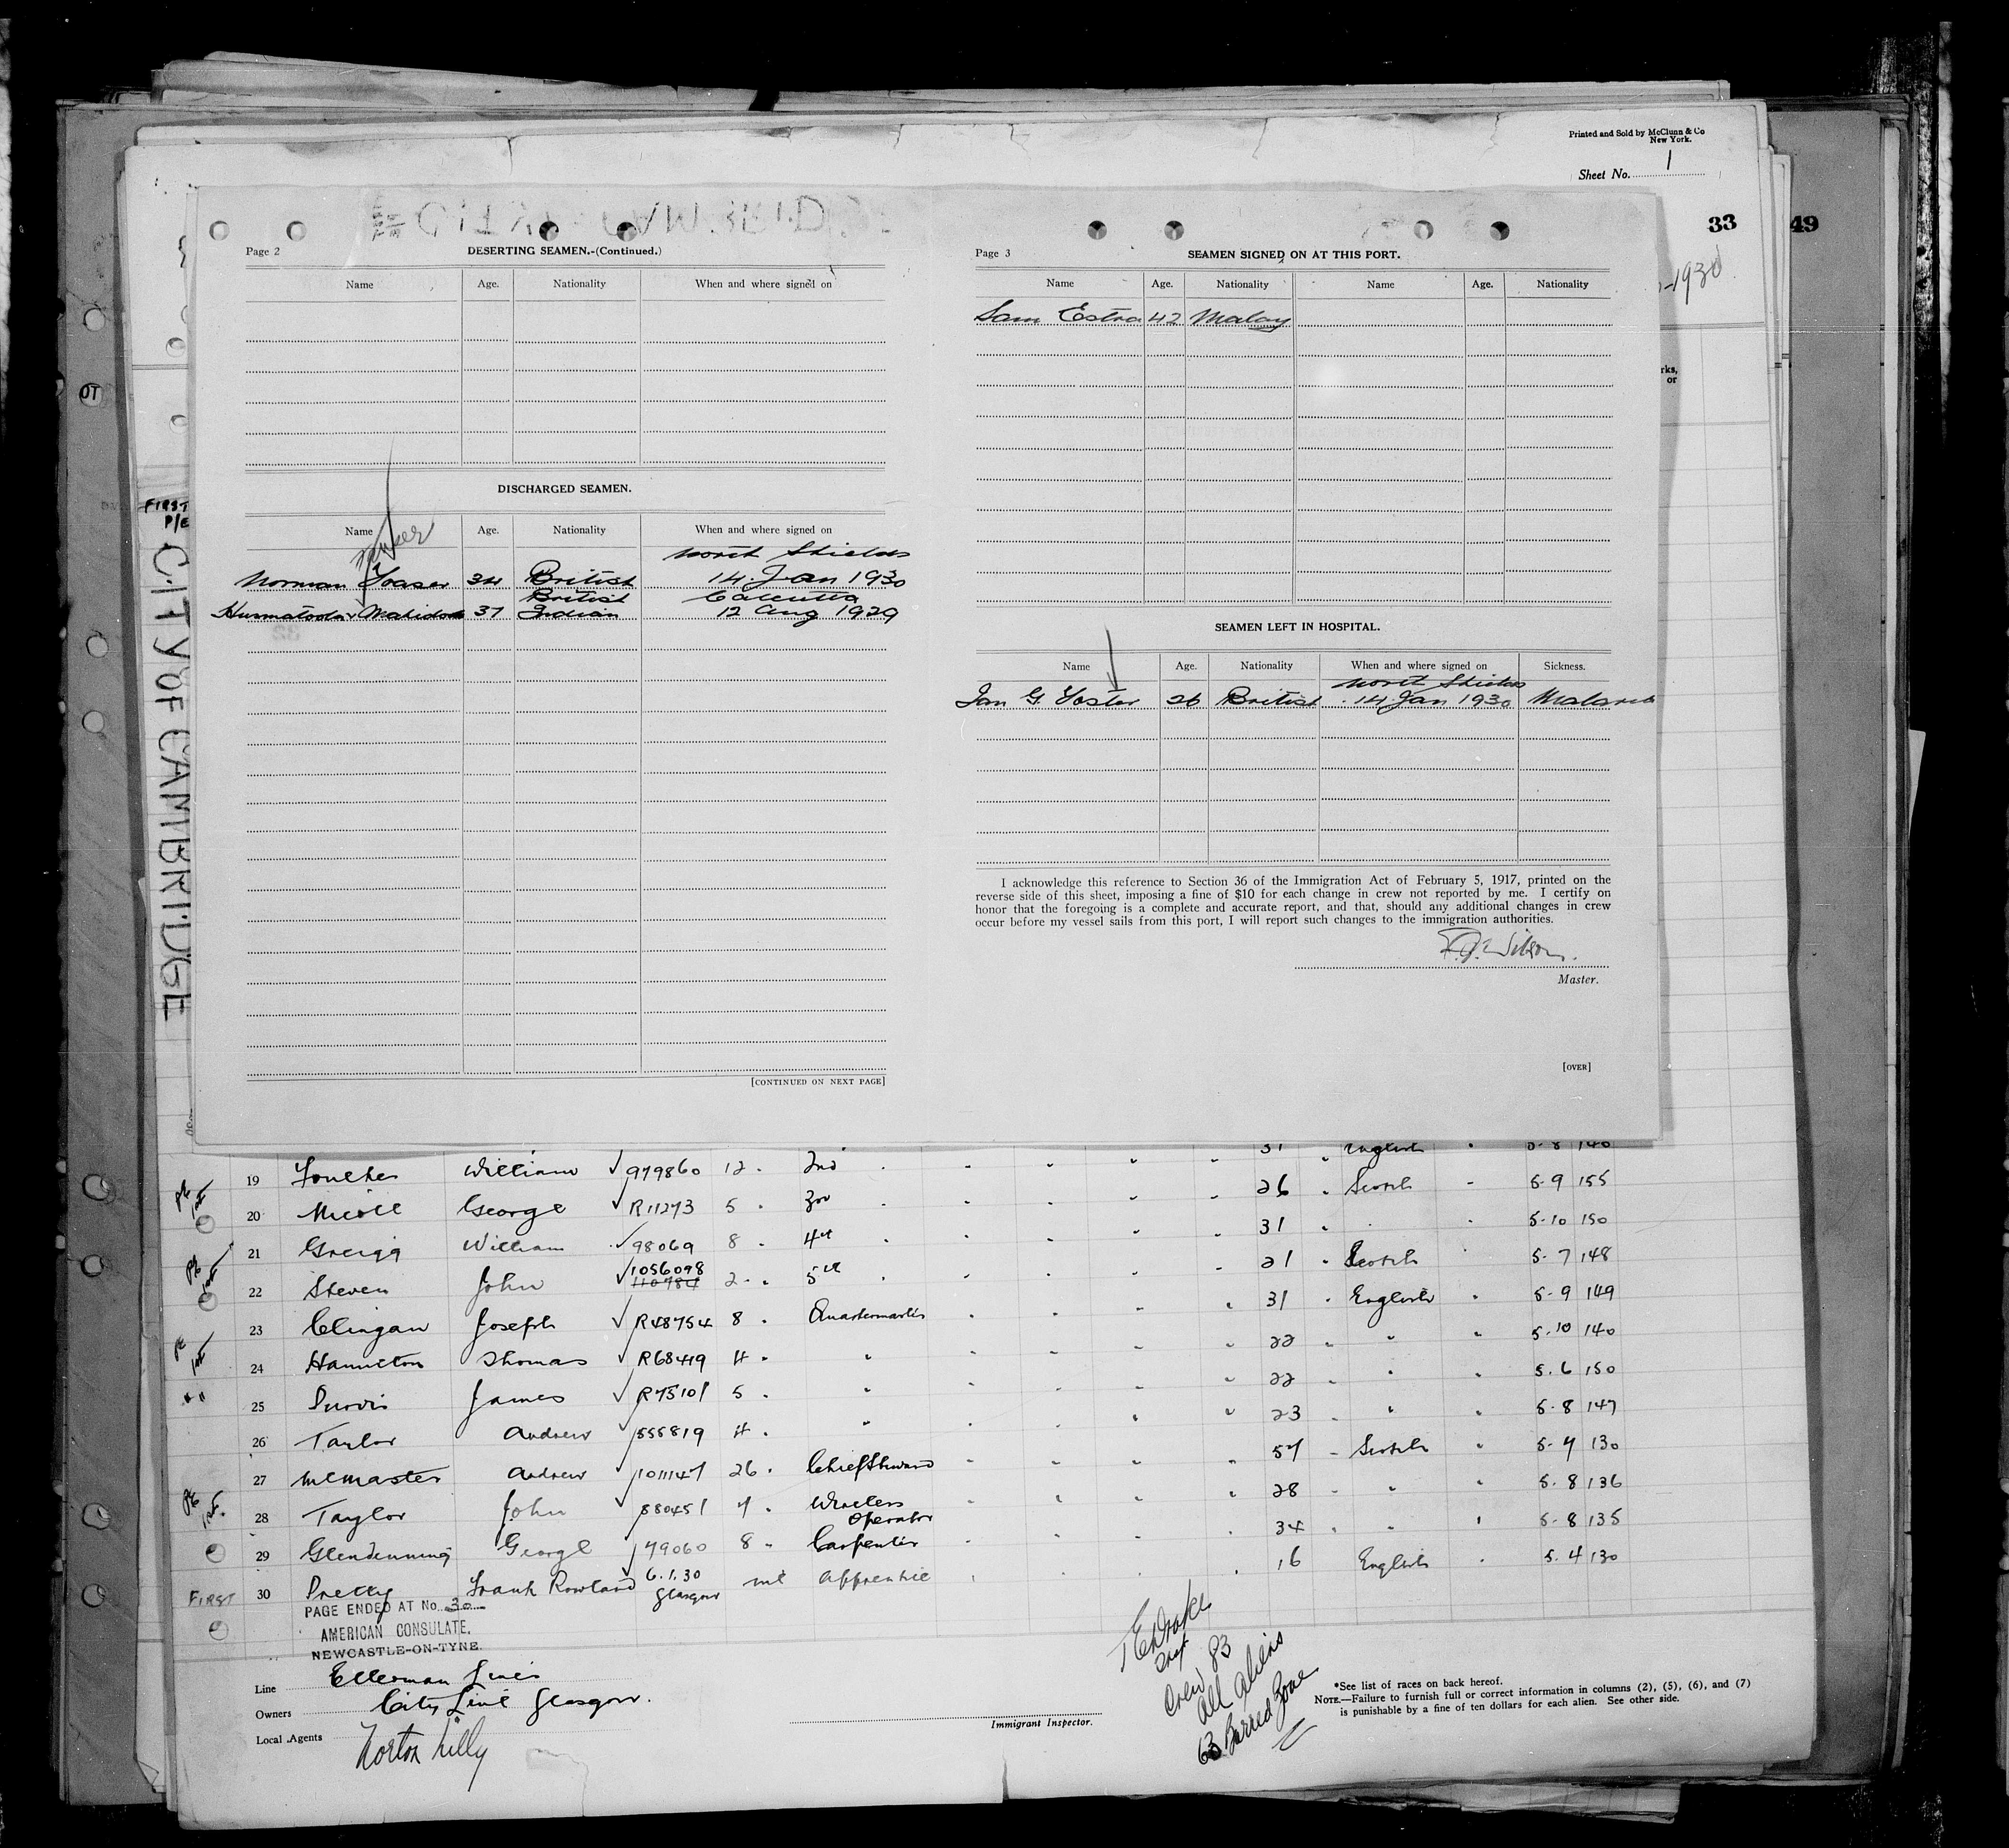 Printed and Sold by McClunn & Co
New York.
Sheet No. 1
33
49
-1930
rks,
or
OT
FIRST
P/E
CITY OF CAMBRIDGE
Page 2
DESERTING SEAMEN.-(Continued.)
Name Age. Nationality When and where signed on
DISCHARGED SEAMEN.
Name Age. Nationality When and where signed on
North Shields
Norman 34 British 14 Jan 1930
British Calcutta
37 Indian 12 Aug 1929
[CONTINUED ON NEXT PAGE]
Page 3
SEAMEN SIGNED ON AT THIS PORT.
Name Age. Nationality Name Age. Nationality
Sam Estra 42 Malay
SEAMEN LEFT IN HOSPITAL.
Name Age. Nationality When and where signed on Sickness.
North Shields
Ian G. Foster 26 British 14 Jan 1930 Malaria
I acknowledge this reference to Section 36 of the Immigration Act of February 5, 1917, printed on the
reverse side of this sheet, imposing a fine of $10 for each change in crew not reported by me. I certify on
honor that the foregoing is a complete and accurate report, and that, should any additional changes in crew
occur before my vessel sails from this port, I will report such changes to the immigration authorities.
Wilson.
Master.
[OVER]
31 English 5-8 140
19 William 979860 12 2nd 26 Scotch 5-9 155
20 Nicoll George R11273 5 3rd 31 5-10 150
21 Greigg William 98069 8 4th 21 Scotch 5-7 148
22 Steven John 1056098 110784 2 5th 31 English 5-9 149
23 Clingan Joseph R48754 8 Quartermaster 22 " 5.10 140
24 Hamilton Thomas R68419 4 " 22 " 5.6 150
25 Purvis James R75101 5 " 23 " 5-8 147
26 Taylor Andrew 555819 4 " 57 Scotch 5-4 130
27 McMaster Andrew 1011147 26 Chief Steward 28 " 5.8 136
28 Taylor John 880451 7 Wireless Operator 34 " 5-8 135
29 Glendenning George 79060 8 Carpenter 16 English 5.4 130
FIRST 30 Pretty Frank Rowland 6.1.30 Glasgow Apprentice
PAGE ENDED AT No. 30
AMERICAN CONSULATE,
NEWCASTLE-ON-TYNE.
Line Ellerman Lines
Owners City Line Glasgow.
Local Agents Norton Lilly
Immigrant Inspector.
Crew 83
All Aliens
63 Barred Zone
*See list of races on back hereof.
NOTE.—Failure to furnish full or correct information in columns (2), (5), (6), and (7)
is punishable by a fine of ten dollars for each alien. See other side.